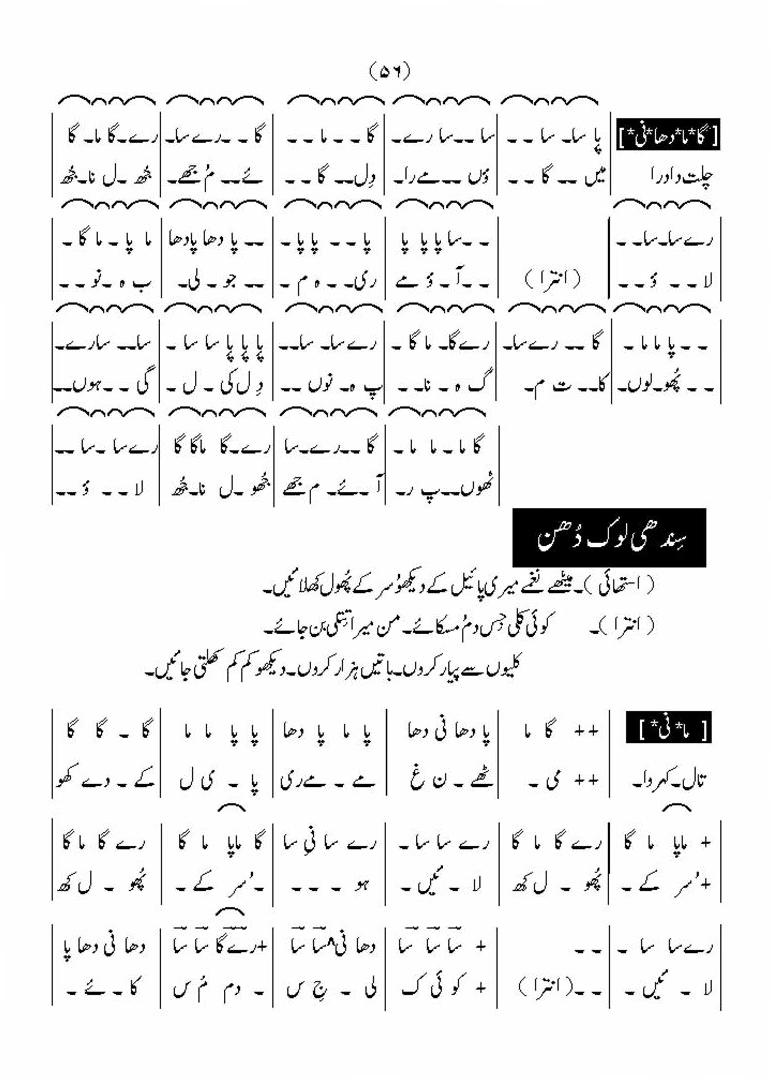 (۵۶)
[گا*ما*دھا*نی*] | پا سا۔ سا ۔ ۔ | سا ۔۔سا رے۔ | گا ۔ ۔ ما ۔ ۔ | گا ۔ ۔رے سا۔ | رے۔گا ما۔ گا |
چلت دادرا | میں ۔۔ گا ۔ ۔ | ؤں ۔۔مے را۔ | دِل۔۔ گا ۔ ۔ | ئے۔۔ مُ جھے۔ | جُھ ۔ل نا۔جُھ |
| رے سا۔سا۔ ۔ | | ۔ ۔سا پا پا پا | پا ۔ ۔ پا پا۔ | ۔۔ پا دھا پادھا | ما پا ۔ ما گا ۔ |
| لا ۔ ۔ ؤ ۔ ۔ | (انترا) | ۔ ۔آ ۔ ؤ مے | ری۔ ۔ ہ م ۔ | ۔۔ جو ۔ لی۔ | ب ہ ۔نو ۔ ۔ |
| ۔ ۔ پا ما ما ۔ | گا ۔۔ رے سا۔ | رے گا۔ ما گا ۔ | رے سا۔ سا۔۔ | پا پا پا سا سا ۔ | سا۔۔ سارے۔ |
| ۔ ۔ پُھو۔لوں۔ | کا۔۔ ت م۔ | گ ہ ۔ نا۔ ۔ | پ ہ۔ نوں ۔۔ | دِ ل کی ۔ ل ۔ | گی ۔ ۔ہوں۔۔ |
| گا ما ۔ ما ما ۔ | گا ۔۔رے۔سا | رے۔گا ماگا گا | رے سا ۔سا ۔۔ |
| ٹھوں۔۔پ ر۔ | آ ۔ئے۔ م جھے | جُھو ۔ل نا۔جُھ | لا ۔ ۔ ؤ ۔۔ |
سِندھی لوک دُھن
(استھائی)۔ میٹھے نغمے میری پائیل کے دیکھو سُر کے پُھول کھلائیں۔
(انترا)۔ کوئی کلی جِس دم مُسکائے۔ من میرا تِتلی بن جائے۔
کلیوں سے پیار کروں۔باتیں ہزار کروں۔دیکھو کم کم کھلتی جائیں۔
[ما*نی*] | ++ گا ما | پا دھا نی دھا | پا ما پا دھا | پا پا ما ما | گا ۔ گا گا |
تال۔کہروا۔ | ++ می ۔ | ٹھے ۔ ن غ | مے ۔ مے ری | پا ۔ ی ل | کے ۔ دے کھو |
| + ماپا ما گا | رے گا ما گا | رے سا سا ۔ | رے سا نیِ سا | گا ماپا ما گا | رے گا ما گا |
| +سُر کے ۔ | پُھو ۔ ل کھ | لا ۔ ئیں ۔ | ہو ۔ ۔ ۔ | ۔سُر کے ۔ | پُھو ۔ ل کھ |
| رے سا سا ۔ | ۔ ۔ | + سا سا سا | دھا نی^سا سا | +رےگا سا سا | دھا نی دھا پا |
| لا ۔ ئیں ۔ | ۔ ۔(انترا) | + کو ئی ک | لی ۔ جِ س | ۔ دم مُ س | کا ۔ ئے ۔ |